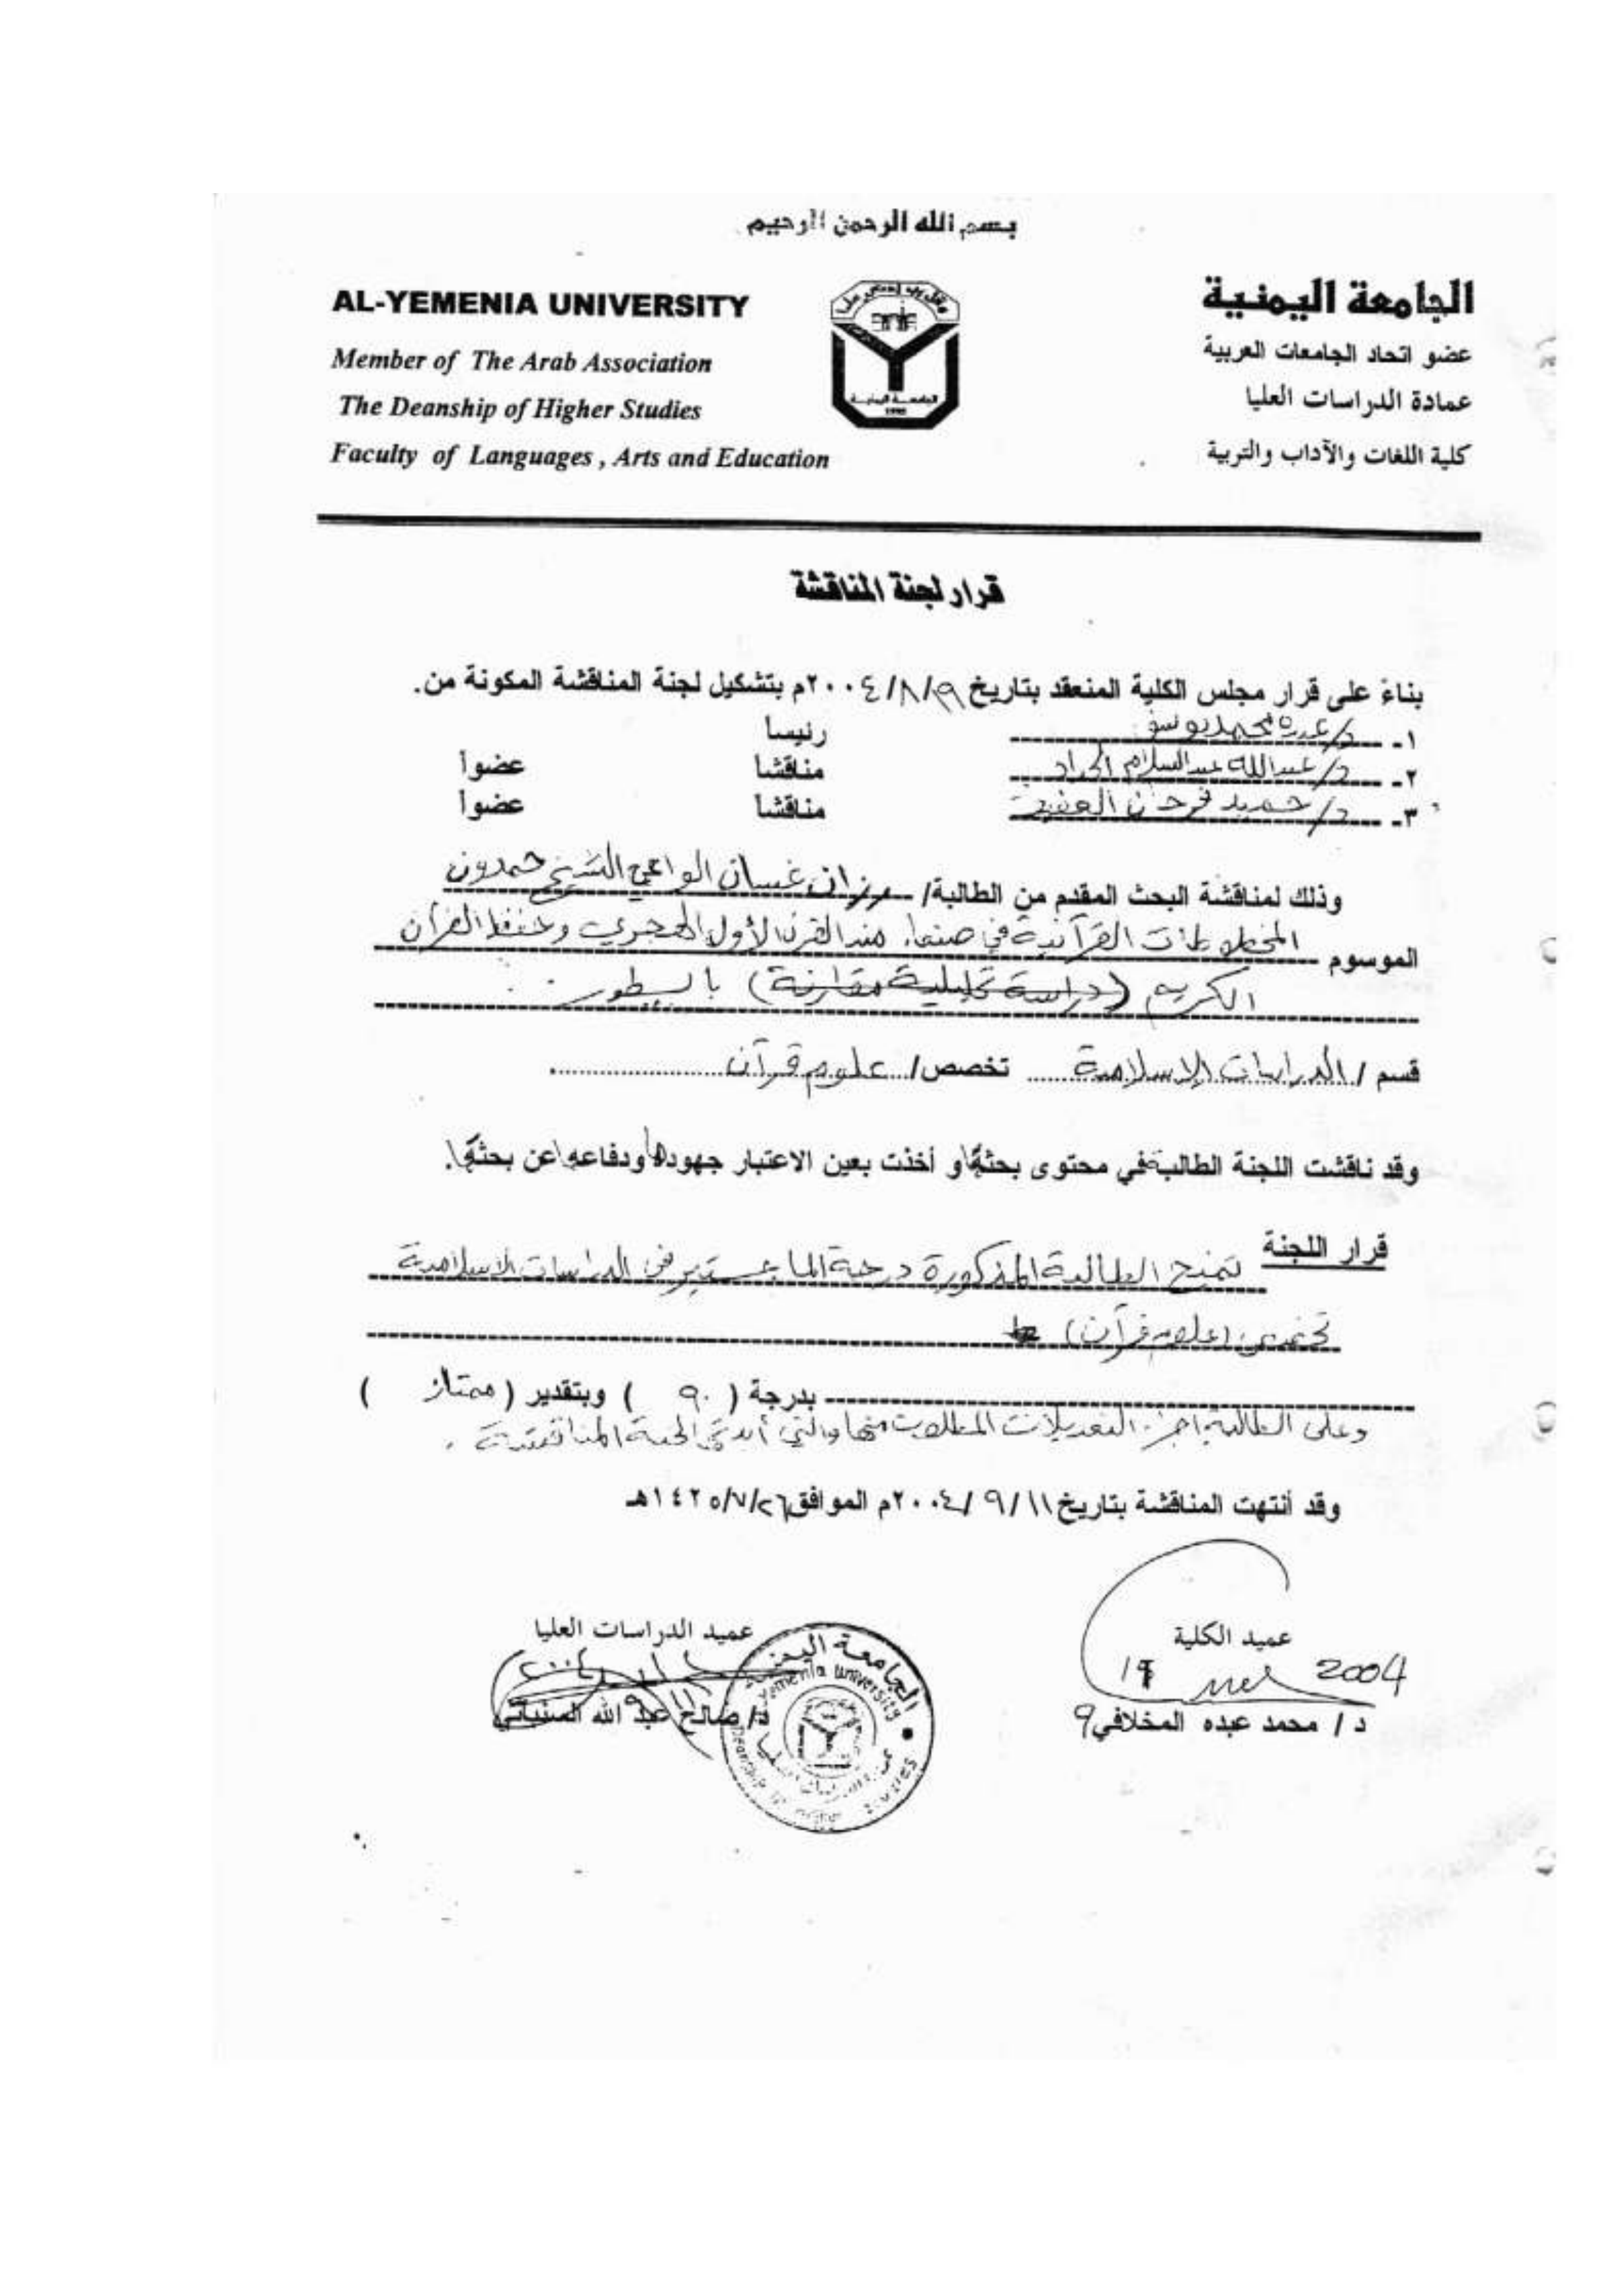 بسم الله الرحمن الرحيم
AL-YEMENIA UNIVERSITY
Member of The Arab Association
The Deanship of Higher Studies
Faculty of Languages , Arts and Education
الجامعة اليمنية
عضو اتحاد الجامعات العربية
عمادة الدراسات العليا
كلية اللغات والآداب والتربية
وقل رب زدني علما
الجامعة اليمنية
قرار لجنة المناقشة
بناءً على قرار مجلس الكلية المنعقد بتاريخ ٢٠٠٤/٨/٩م بتشكيل لجنة المناقشة المكونة من.
١- د/ محمد يوسف رئيسا
٢- د/ عبدالله عبدالسلام الحداد مناقشا عضواً
٣- د/ حميد فرحان مناقشا عضواً
وذلك لمناقشة البحث المقدم من الطالبة/ رزان غسان الواعي الشيخ حمدون
الموسوم المخطوطات القرآنية في صنعاء منذ القرن الأول الهجري وحفظ القرآن
الكريم (دراسة تحليلية مقارنة) بالسطور
قسم / الدراسات الإسلامية تخصص/ علوم قرآن
وقد ناقشت اللجنة الطالبة في محتوى بحثها و أخذت بعين الاعتبار جهودها ودفاعها عن بحثها.
قرار اللجنة تمنح الطالبة المذكورة درجة الماجستير في الدراسات الاسلامية
تخصص (علوم قرآن)
بدرجة ( ٩٠ ) وبتقدير ( ممتاز )
وعلى الطالبة اجراء التعديلات المطلوبة منها والتي أبدتها لجنة المناقشة .
وقد أنتهت المناقشة بتاريخ ٢٠٠٤/٩/١١م الموافق ١٤٢٥/٧/٢٦هـ
عميد الكلية
2004
د / محمد عبده المخلافي
عميد الدراسات العليا
د/ صالح عبد الله السنباني
الجامعة اليمنية
Yemenia University